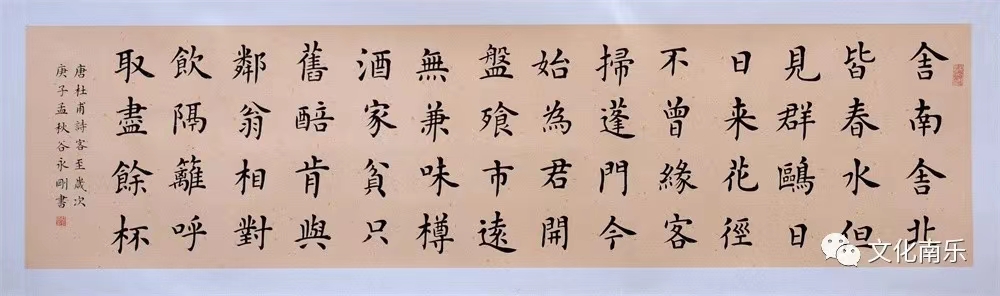 舍南舍北
皆春水但
見群鷗日
日来花徑
不曾緣客
掃蓬門今
始為君開
盤飧市遠
無兼味樽
酒家貧只
舊醅肯與
鄰翁相對
飲隔籬呼
取盡餘杯
唐杜甫詩客至歲次
庚子孟秋谷永剛書
文化南乐